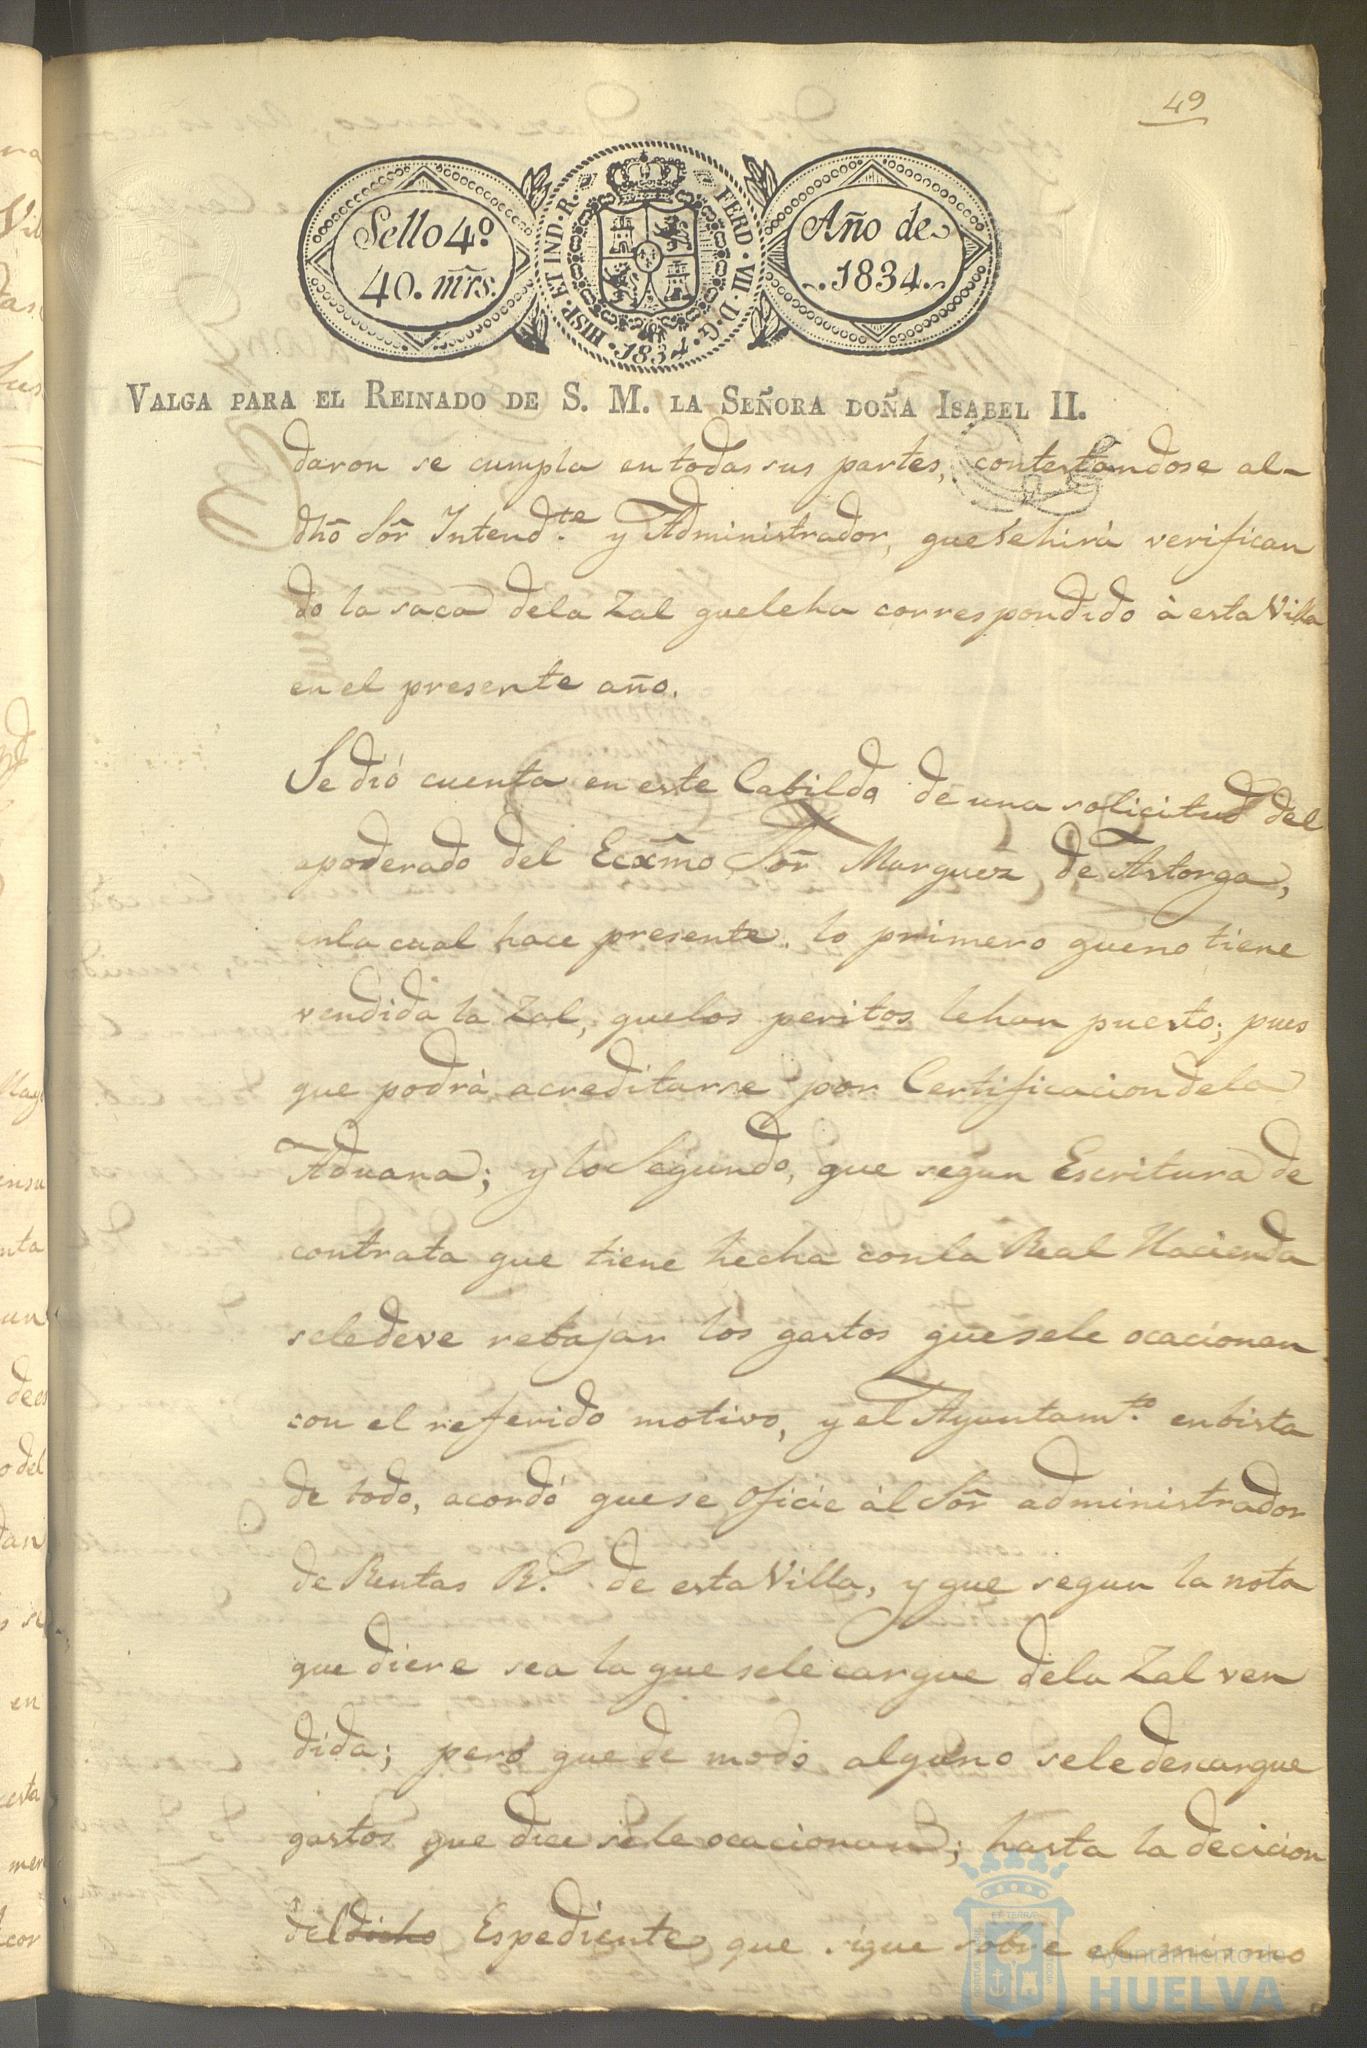 49
Sello 4º
40. mrs.
HISP. ET IND. R.
FERD. VII. D. G.
1834.
Año de
1834.
VALGA PARA EL REINADO DE S. M. LA SEÑORA DOÑA ISABEL II.
daron se cumpla en todas sus partes, contestandose al-
dho Sor Intend.te y Administrador, que se hirá verifican
do la saca dela Zal que le ha correspondido à esta Villa
en el presente año.
Se dió cuenta en este Cabildo de una solicitud del
apoderado del Ecxmo Sor Marquez de Astorga,
enla cual hace presente. lo primero que no tiene
vendida la Zal, quelos peritos lehan puesto; pues
que podrà acreditarse por Certificacion dela
Aduana; y lo Segundo, que segun Escritura de
contrata que tiene hecha conla Real Hacienda
seledeve rebajar los gastos quesele ocacionan
con el referido motivo, y el Ayuntam.to enbista
de todo, acordó quese oficie àl Sor administrador
de Rentas R.s de esta Villa, y que segun la nota
que diere sea la que sele cargue dela Zal ven
dida; pero que de modo alguno sele descargue
gastos que dice sele ocacionan; hasta la decicion
del dicho Espediente que sigue sobre el mismo
Ayuntamiento de
HUELVA